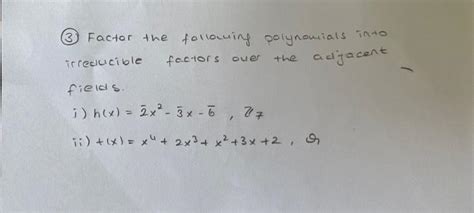 ③ Factor the following polynomials into
irreducible factors over the adjacent
fields.
i) h(x) = 2̄x² - 3̄x - 6̄ , ℤ₇
ii) t(x) = x⁴ + 2x³ + x² + 3x + 2 ,